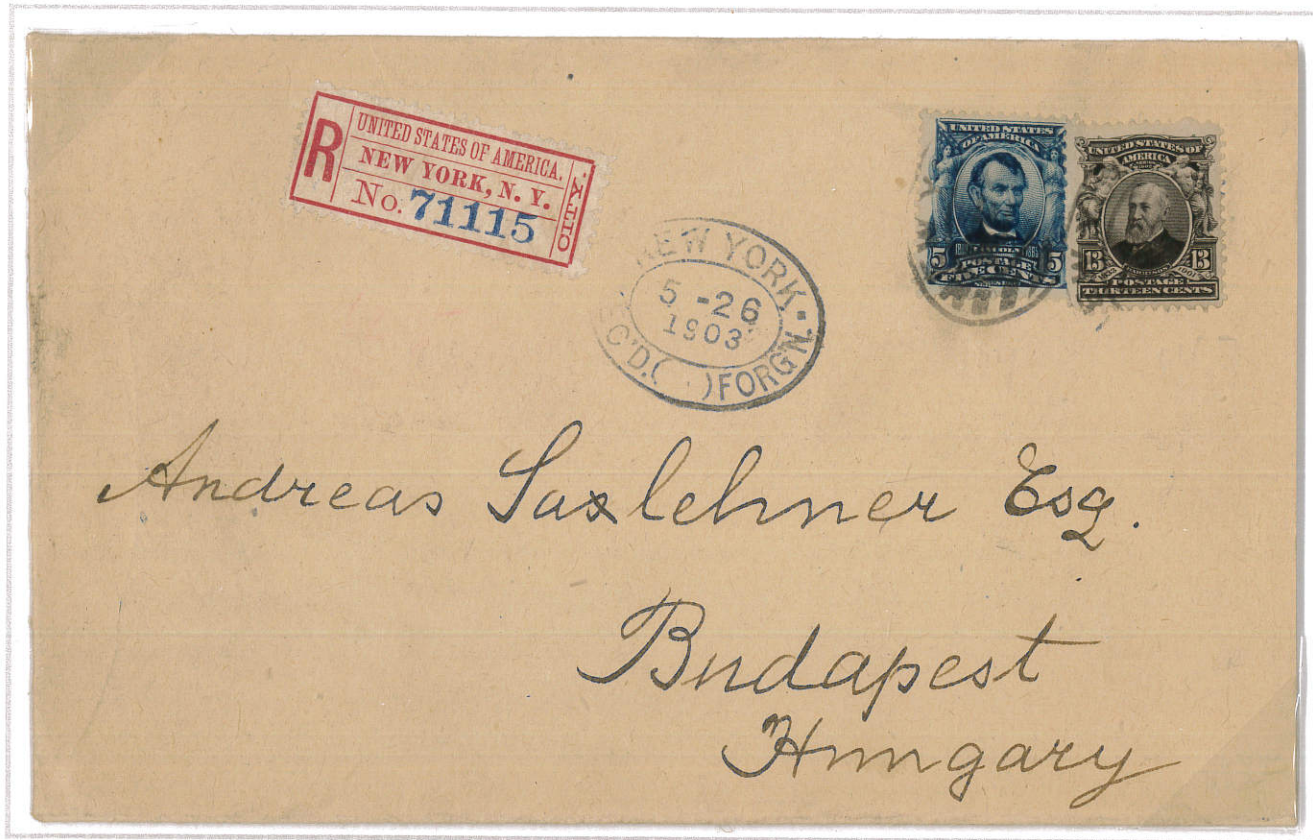 R
UNITED STATES OF AMERICA.
NEW YORK, N. Y.
No. 71115
CITY.
NEW YORK
5 -26
1903
C'D.( )FORG'N.
UNITED STATES
OF AMERICA
5 5
POSTAGE
FIVE CENTS
UNITED STATES OF
AMERICA
13 13
POSTAGE
THIRTEEN CENTS
Andreas Saxlehner Esq.
Budapest
Hungary